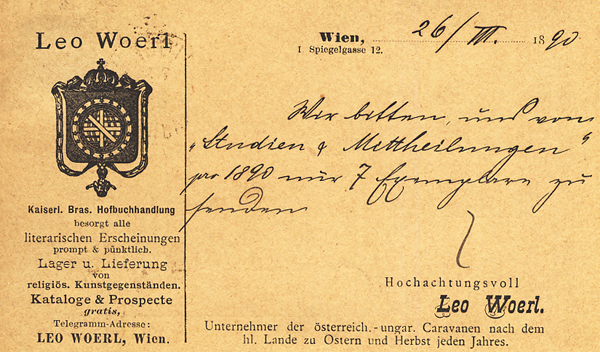 Leo Woerl
Kaiserl. Bras. Hofbuchhandlung
besorgt alle
literarischen Erscheinungen
prompt & pünktlich.
Lager u. Lieferung
von
religiös. Kunstgegenständen.
Kataloge & Prospecte
gratis,
Telegramm-Adresse:
LEO WOERL, Wien.
Wien, 26/III. 1890
I Spiegelgasse 12.
Wir bitten, uns von
„Studien & Mittheilungen“
pro 1890 nur 7 Exemplare zu
senden
Hochachtungsvoll
Leo Woerl.
Unternehmer der österreich.-ungar. Caravanen nach dem
hl. Lande zu Ostern und Herbst jeden Jahres.